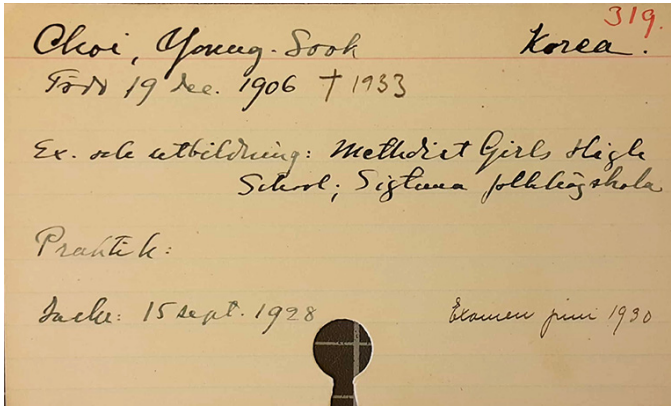 319.
Choi, Young-Sook Korea.
Född 19 dec. 1906 † 1933
Ex. och utbildning: Methodist Girls High
School; Sigtuna folkhögskola
Praktik:
15 sept. 1928 Examen juni 1930